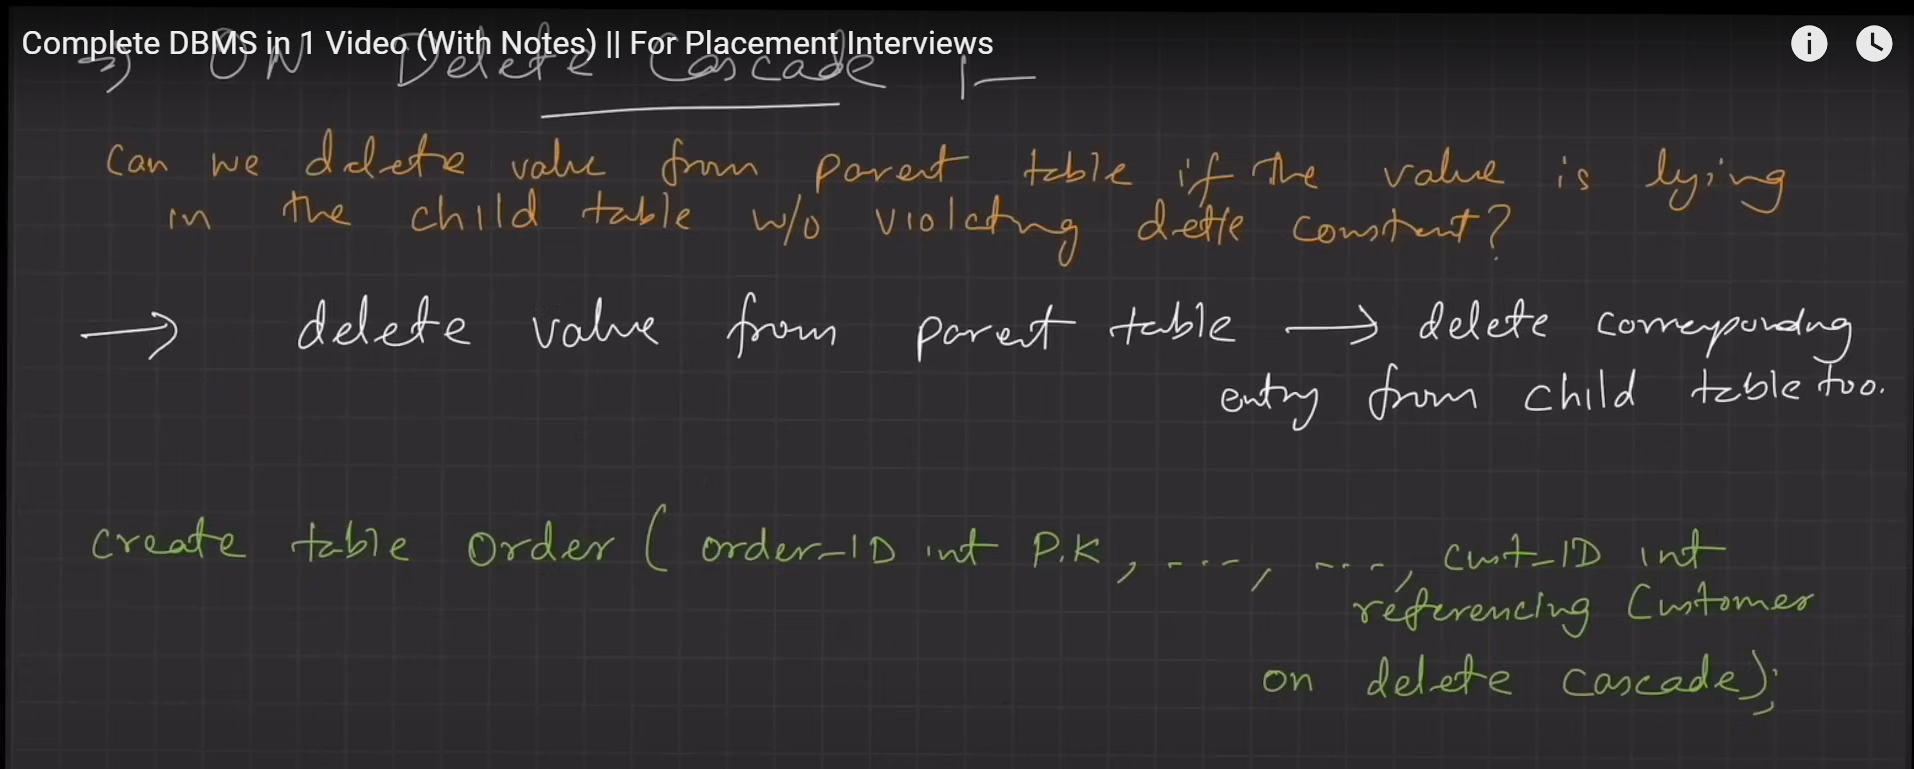 Complete DBMS in 1 Video (With Notes) || For Placement Interviews
=> ON Delete Cascade :-
Can we delete value from parent table if the value is lying
in the child table w/o violating delete constraint?
→ delete value from parent table → delete corresponding
entry from child table too.
create table Order ( order-ID int P.K, ----, ----, cust-ID int
referencing Customer
on delete cascade);